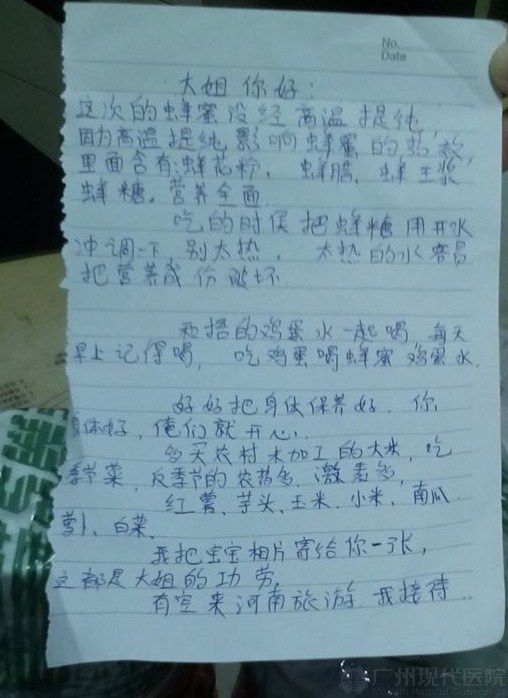 No.
Date
大姐你好:
这次的蜂蜜没经高温提纯,
因为高温提纯影响蜂蜜的
里面含有:蜂花粉、蜂腊、蜂王浆
蜂糖。营养全面
吃的时侯把蜂糖用开水
冲调一下 别太热. 太热的水容易
把营养成份破坏.
的鸡蛋水一起喝 每天
早上记得喝, 吃鸡蛋喝蜂蜜鸡蛋水.
好好把身体保养好. 你
身体好, 俺们就开心.
多买农村未加工的大米, 吃
季节菜, 反季节的农药多. 激素多.
红薯、芋头、玉米、小米、南瓜.
萝卜、白菜.
我把宝宝相片寄给你一张,
这都是大姐的功劳.
有空来河南旅游 我接待..
广州现代医院